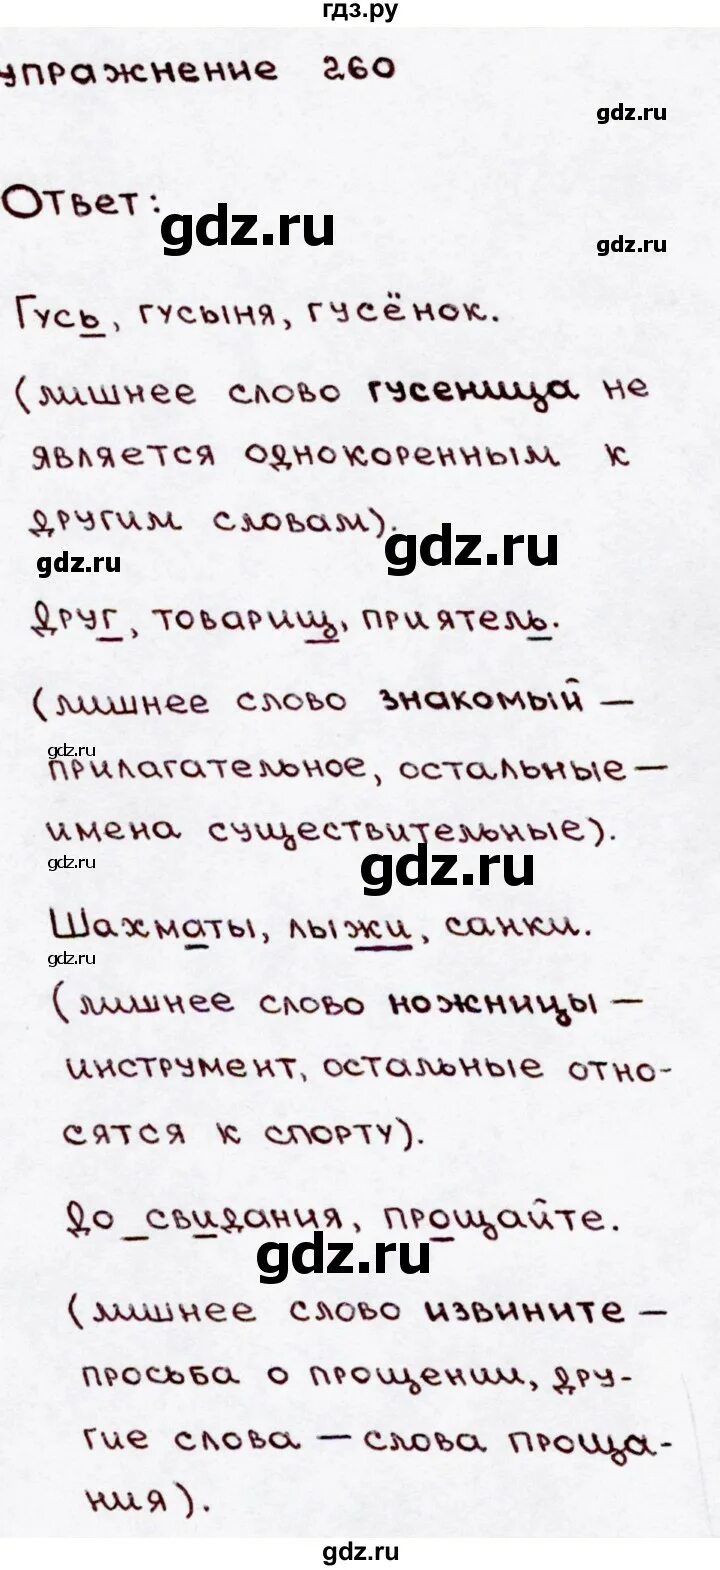 гдз.ру
упражнение 260
gdz.ru
Ответ:
gdz.ru
gdz.ru
Гусь, гусыня, гусёнок.
(лишнее слово гусеница не
является однокоренным к
другим словам).
gdz.ru
gdz.ru
Друг, товарищ, приятель.
(лишнее слово знакомый —
gdz.ru
прилагательное, остальные —
имена существительные).
gdz.ru
gdz.ru
Шахматы, лыжи, санки.
gdz.ru
(лишнее слово ножницы —
инструмент, остальные отно-
сятся к спорту).
До_свидания, прощайте.
gdz.ru
(лишнее слово извините —
просьба о прощении, дру-
гие слова — слова проща-
ния).
gdz.ru